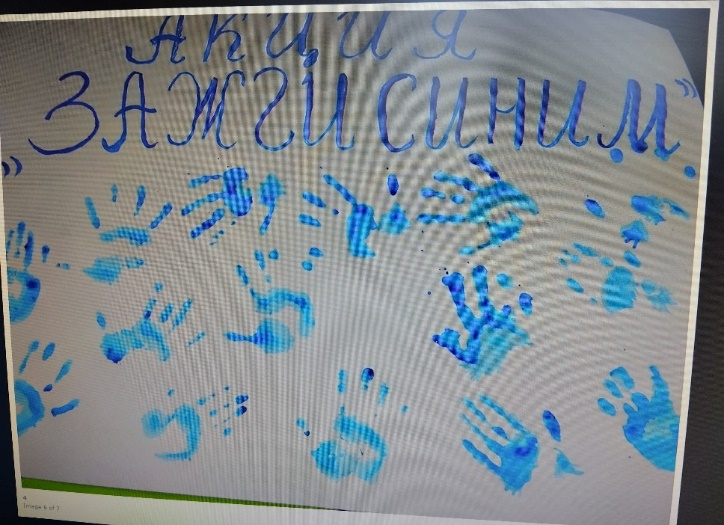 АКЦИЯ
„ЗАЖГИ СИНИМ."
4
Image 6 of 7